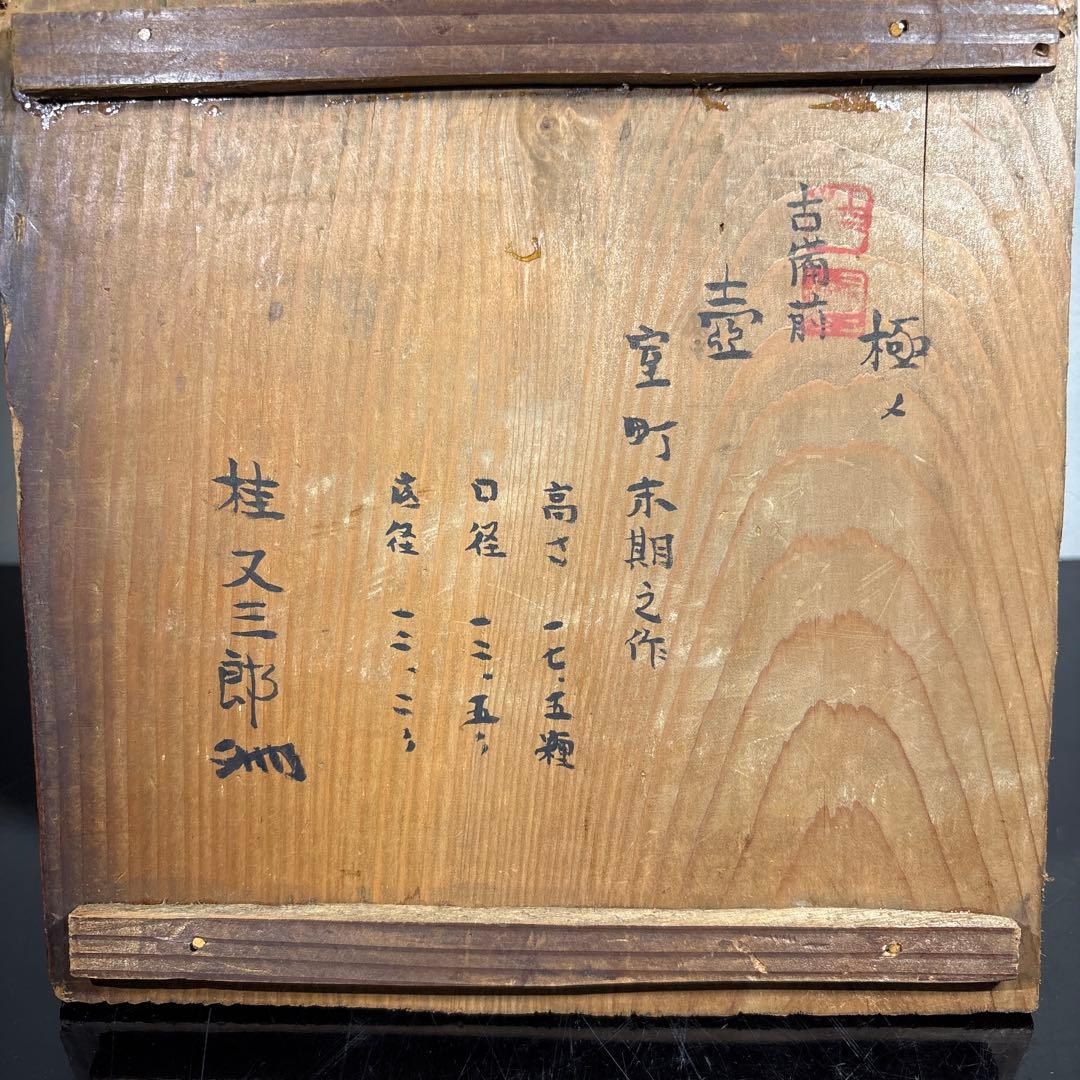 極メ
古備前
壺
室町末期之作
高さ 一七.五糎
口径 一三、五〃
底径 一三、二〃
桂又三郎